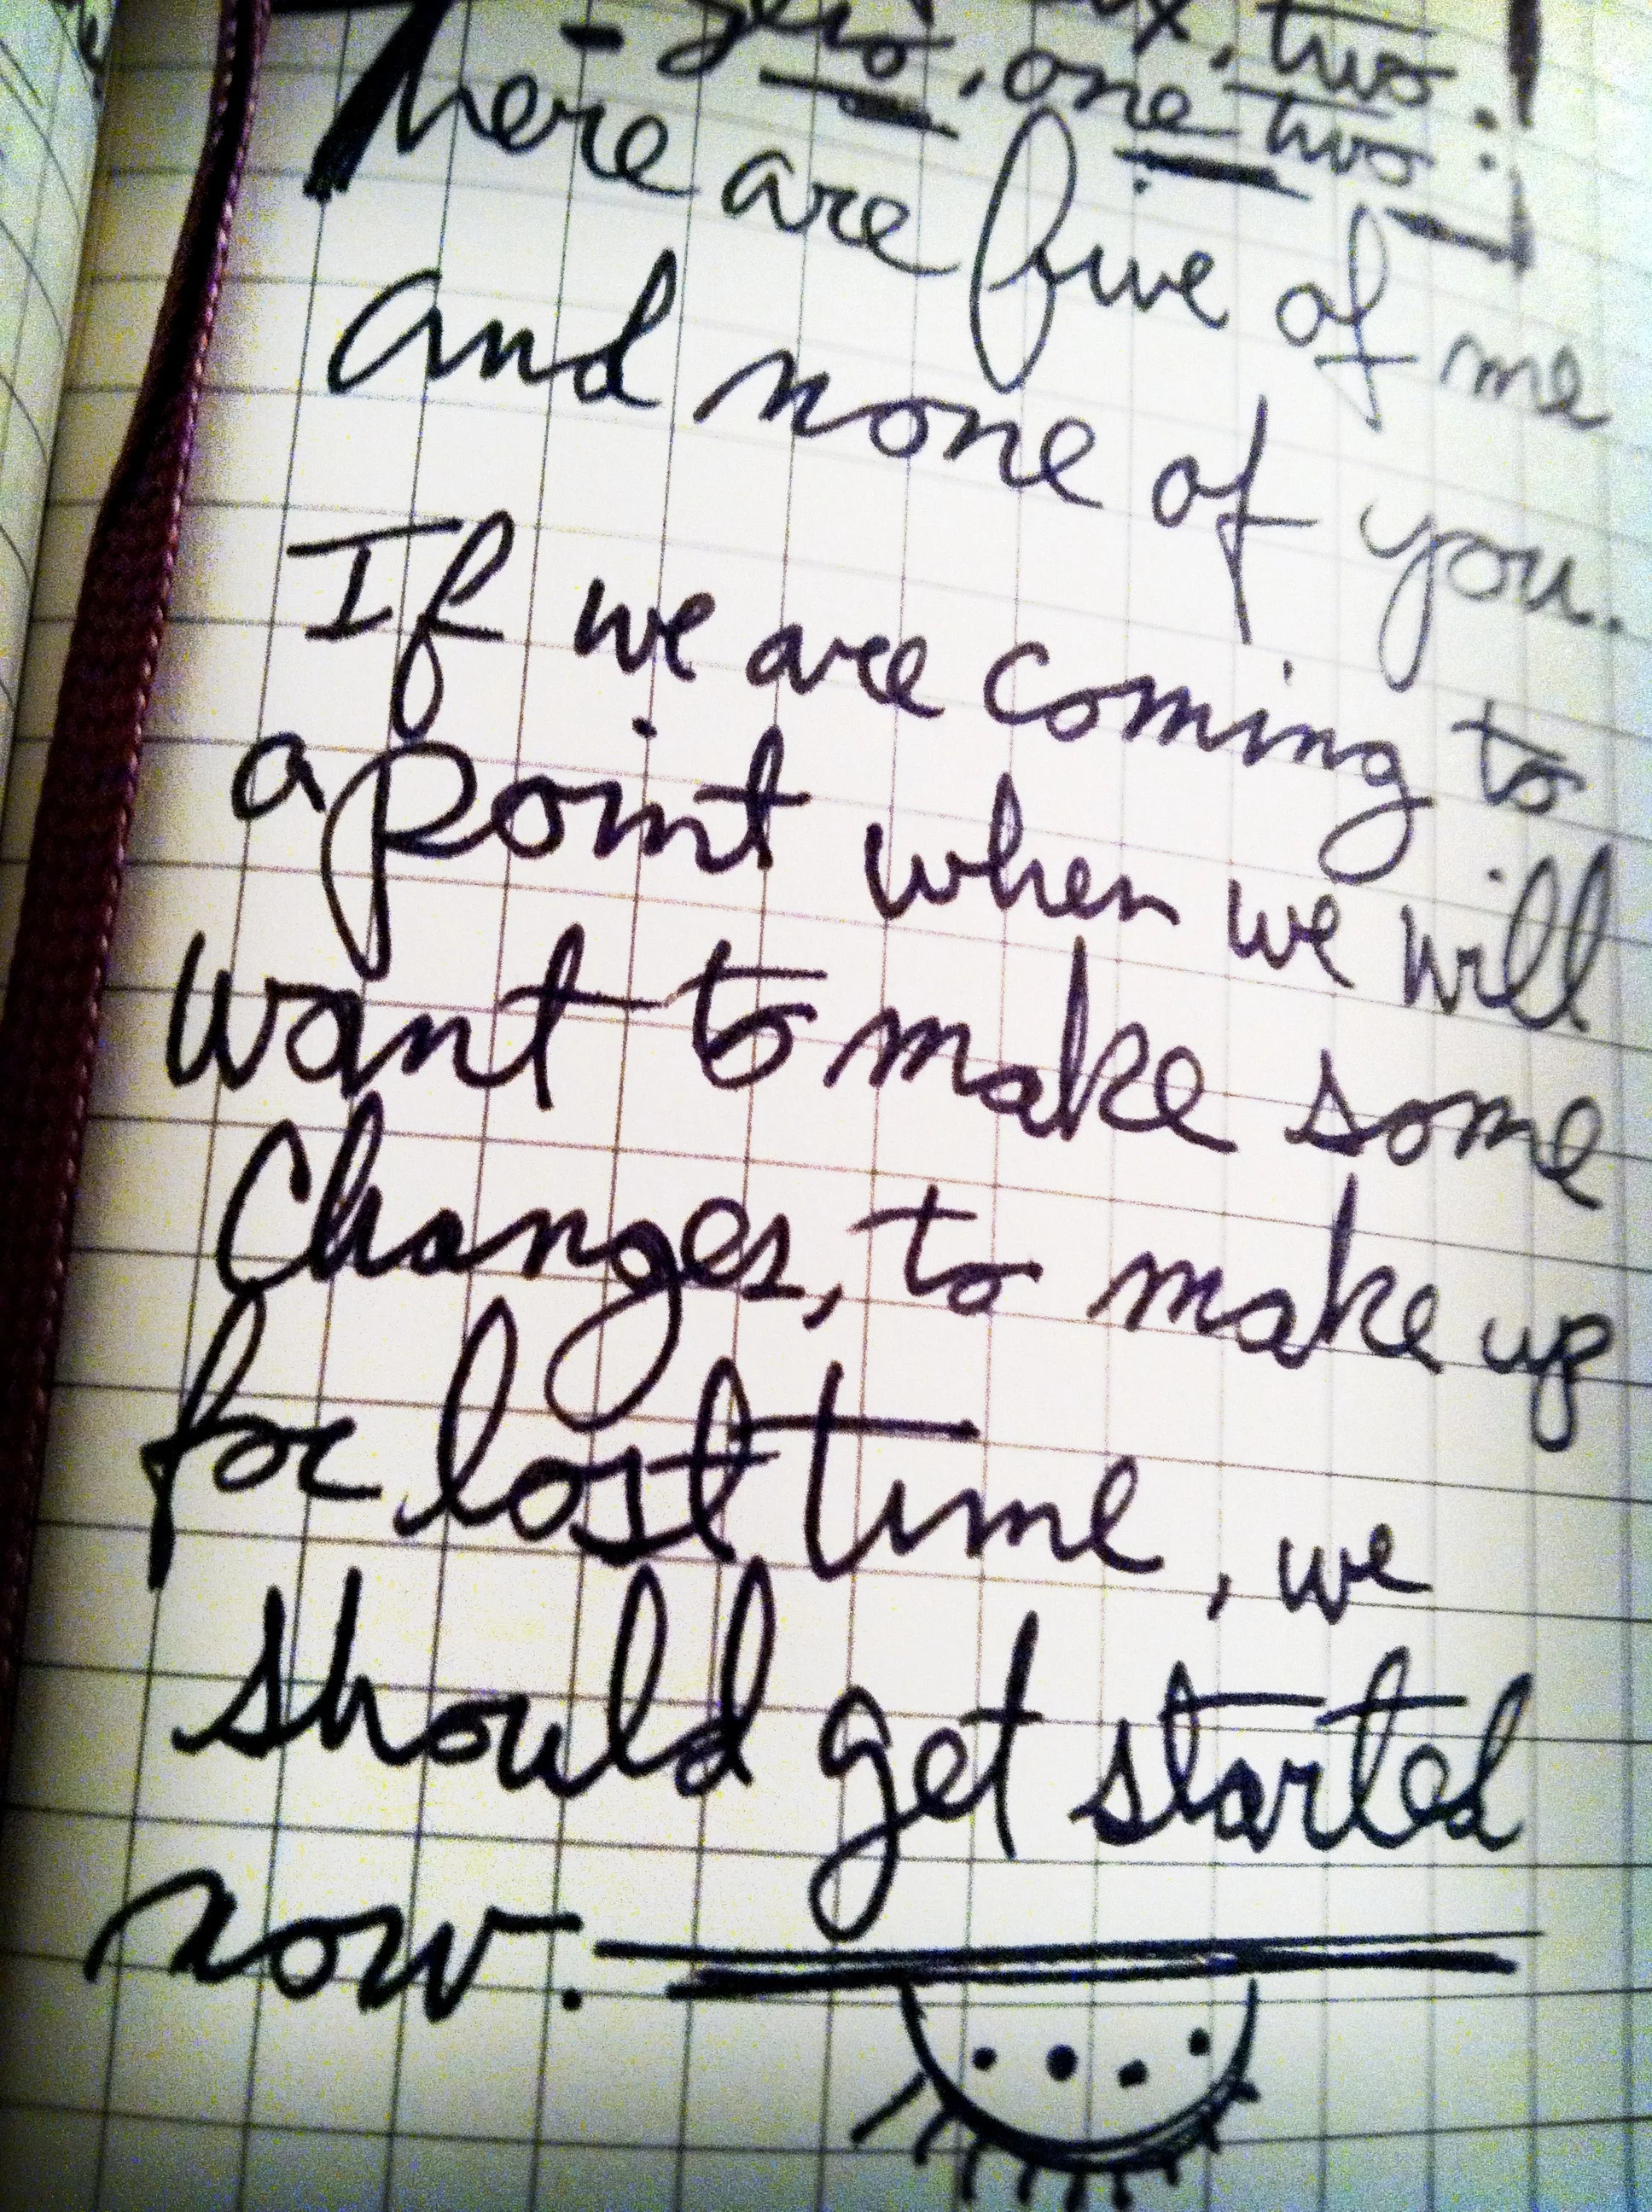 two.
- zero, one two:
There are five of me
and none of you.
If we are coming to
a point when we will
want to make some
changes, to make up
for lost time, we
should get started
now.